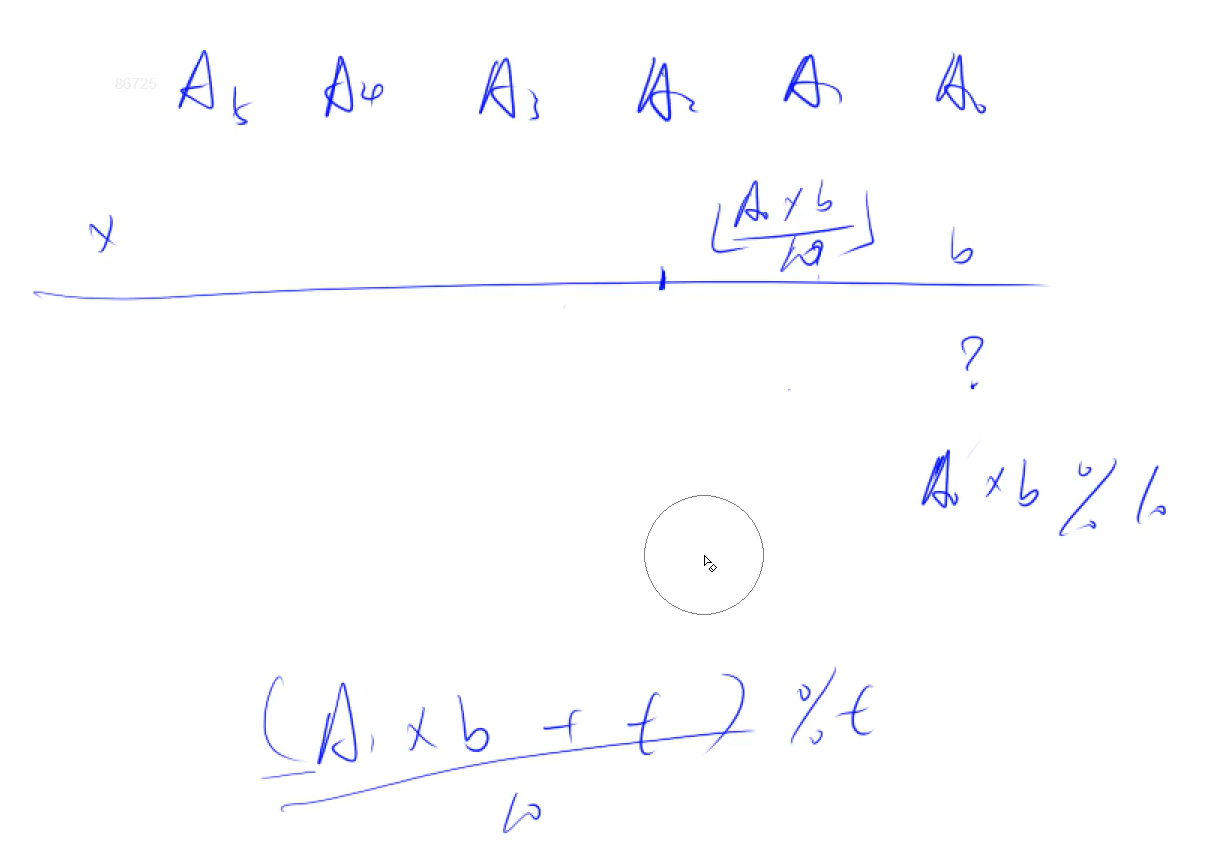 86725
A₅ A₄ A₃ A₂ A₁ A₀
× ⌊A₀ × b / 10⌋ b
?
A₀ × b % 10
(A₁ × b + t) % t
10